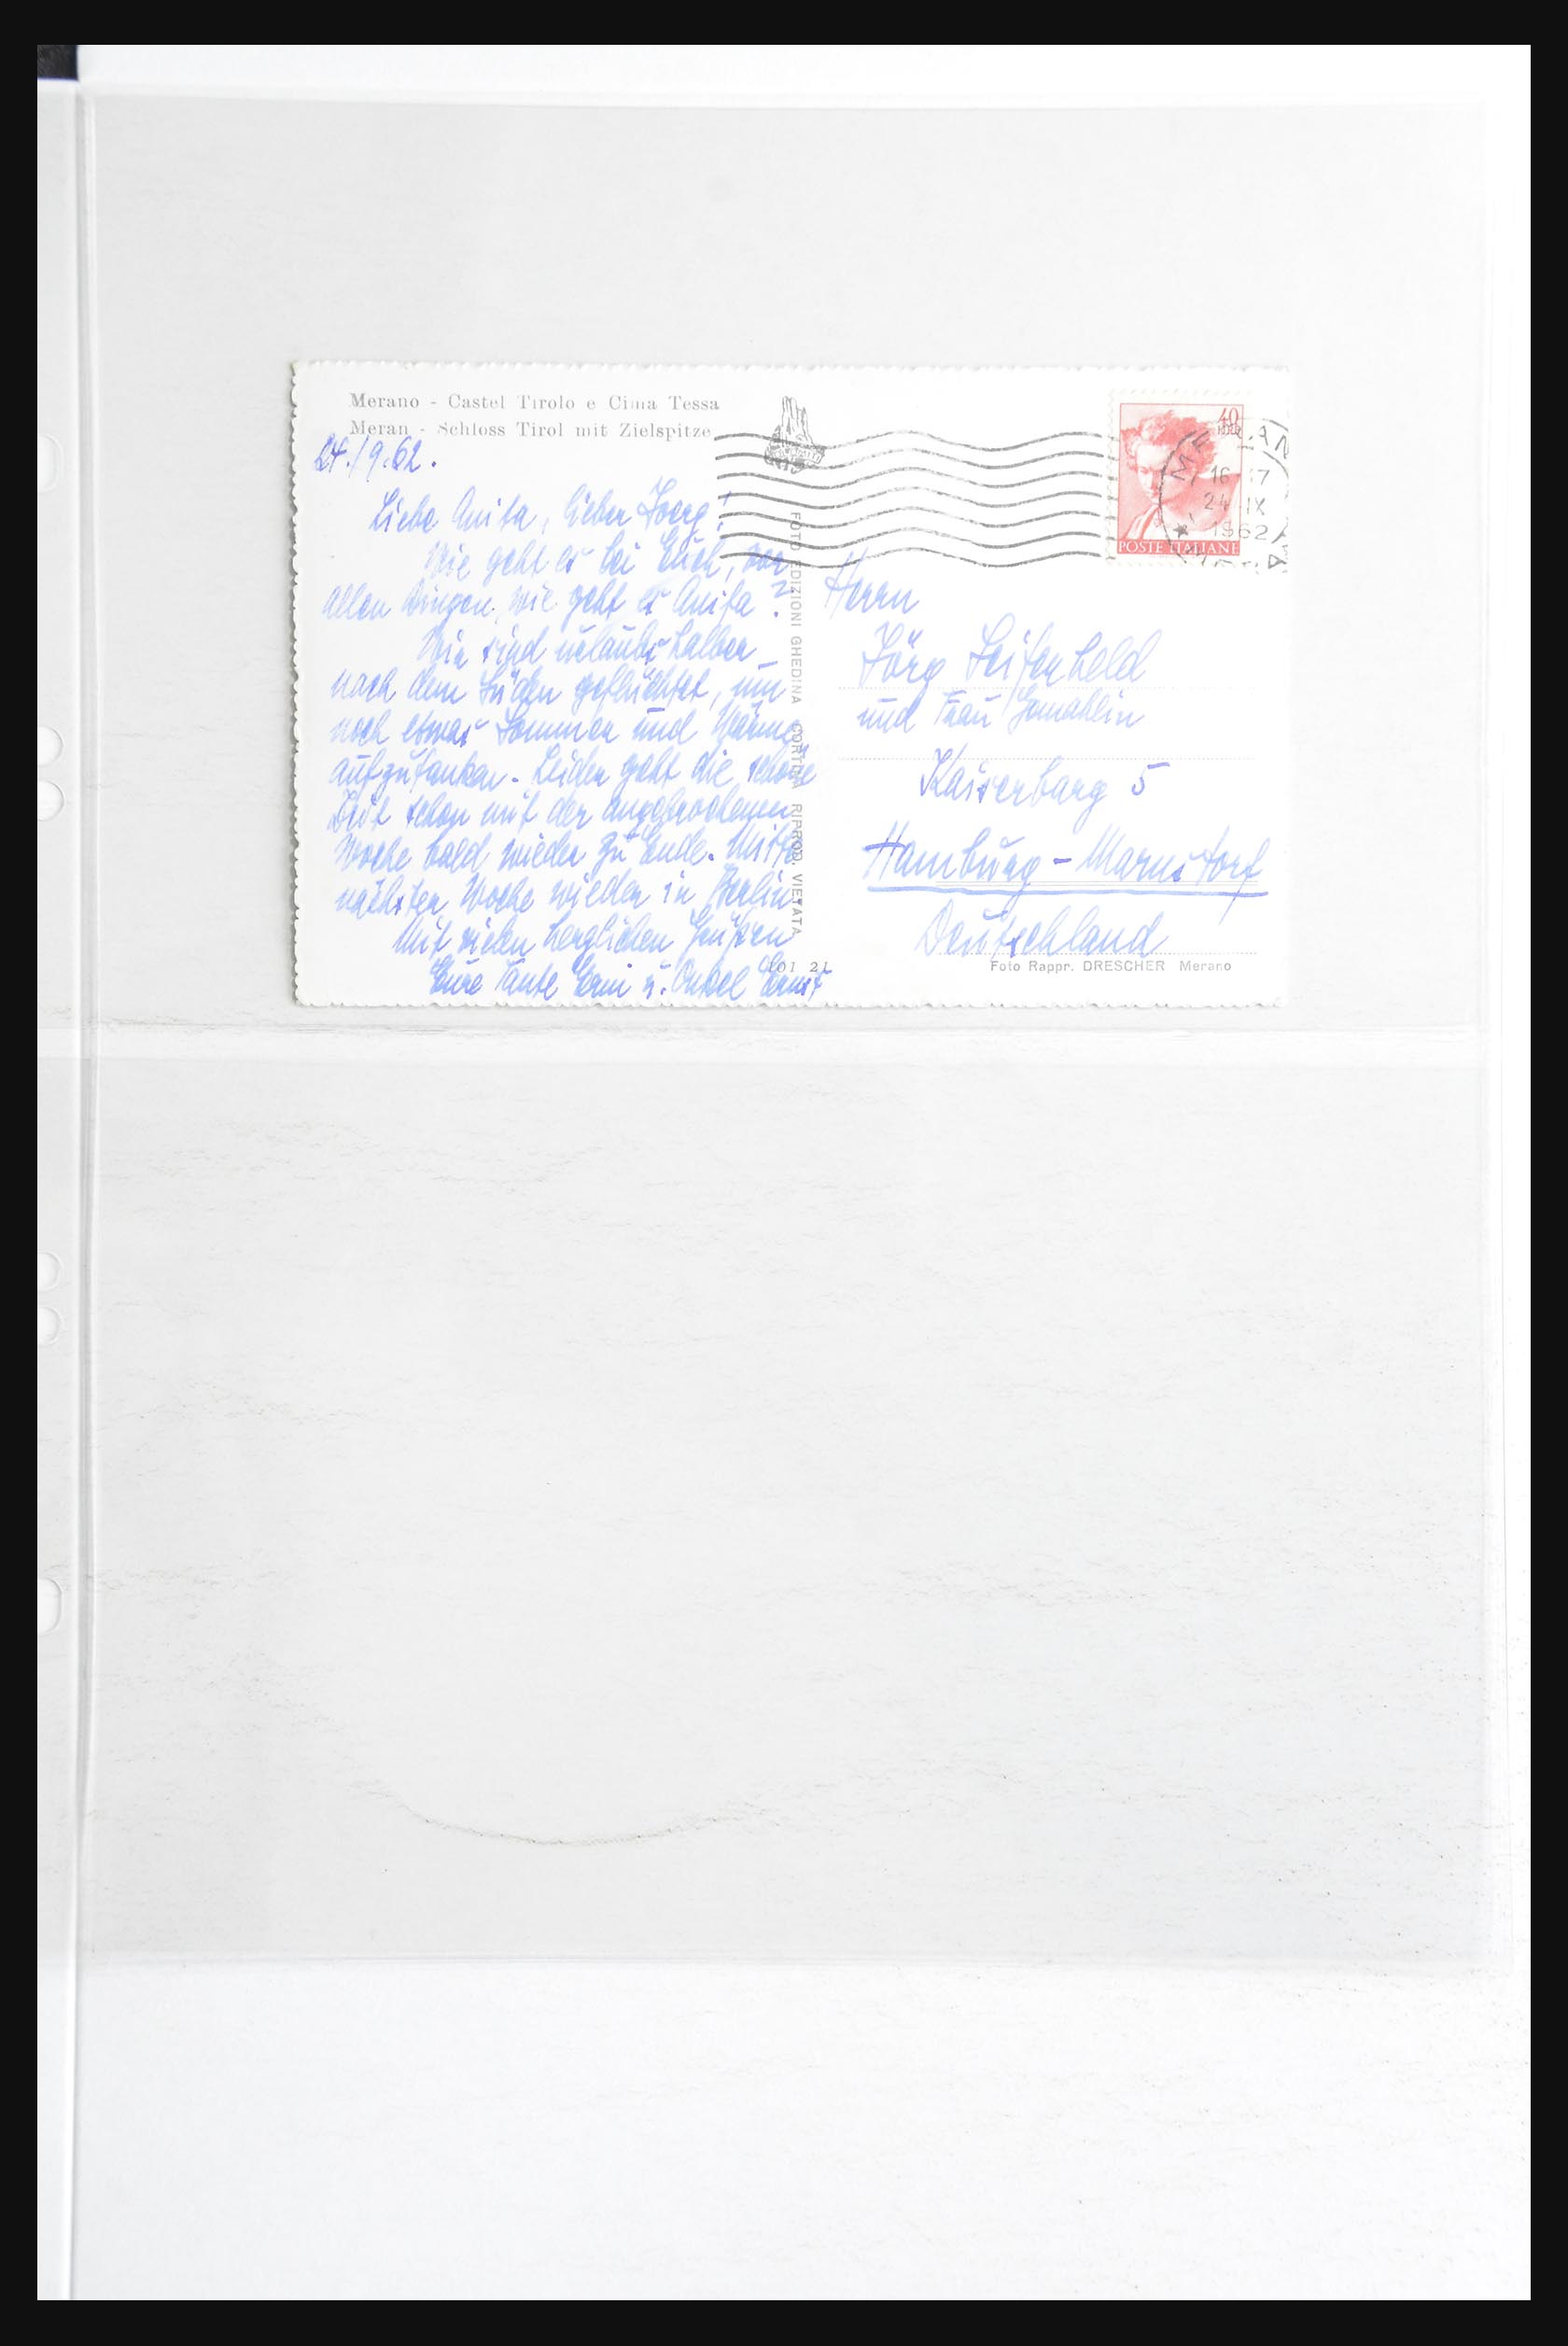 Merano - Castel Tirolo e Cima Tessa
Meran - Schloss Tirol mit Zielspitze
24./9.62.
Liebe Anita, lieber Joerg!
Wie geht es bei Euch, vor
allen Dingen, wie geht es Anita?
Wir sind urlaubshalber
nach dem Süden geflüchtet, um
noch etwas Sommer und Wärme
aufzutanken. Leider geht die schöne
Zeit schon mit der angebrochenen
Woche bald wieder zu Ende. Mitte
nächsten Woche wieder in Berlin.
Mit vielen herzlichen Grüßen
Eure Tante Erni u. Onkel Ernst
FOTO EDIZIONI GHEDINA CORTINA RIPROD. VIETATA
101 21
40
POSTE ITALIANE
16 17
24 IX
1962
Herrn
Jörg Seifenheld
und Frau Gemahlin
Kaiserbarg 5
Hamburg - Marmstorf
Deutschland
Foto Rappr. DRESCHER Merano